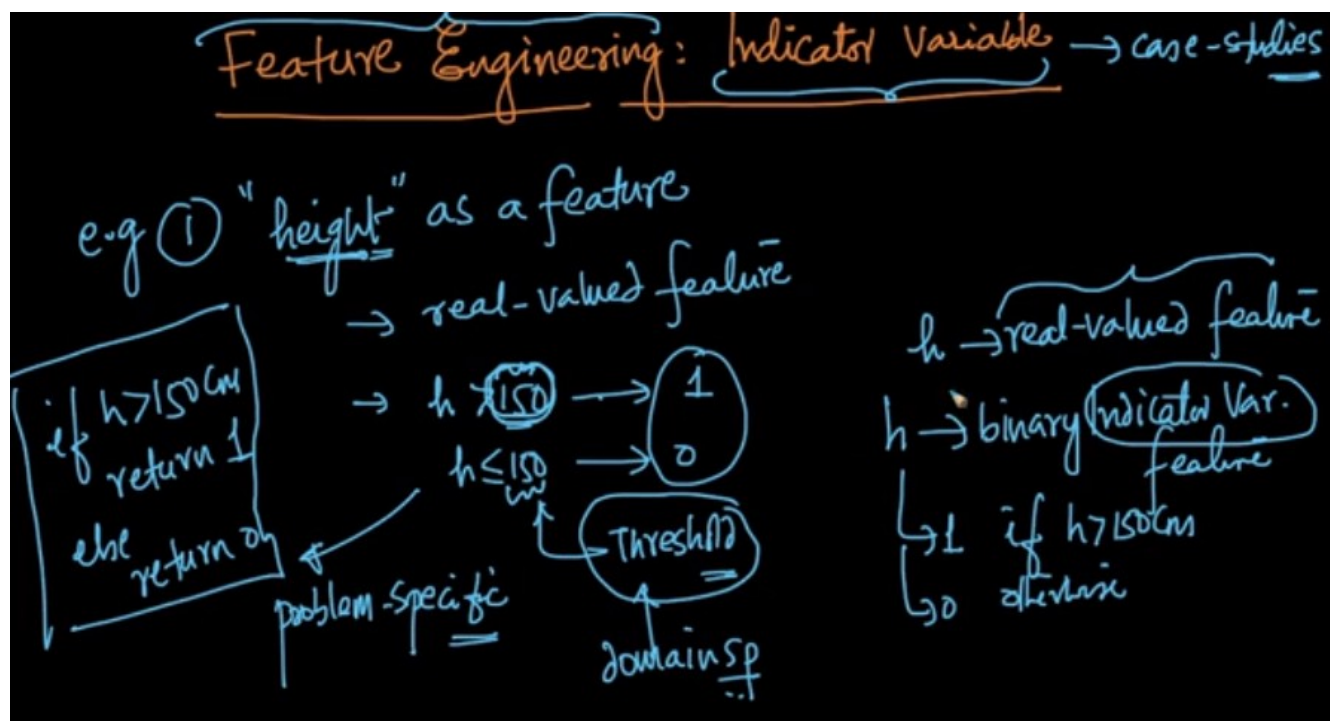 Feature Engineering: Indicator Variable → case-studies
e.g ① "height" as a feature
→ real-valued feature
→ h > 150 → 1
h ≤ 150 → 0
Threshold
domain sp
problem-specific
if h>150cm
return 1
else
return 0
h → real-valued feature
h → binary Indicator Var.
feature
→ 1 if h>150cms
→ 0 otherwise